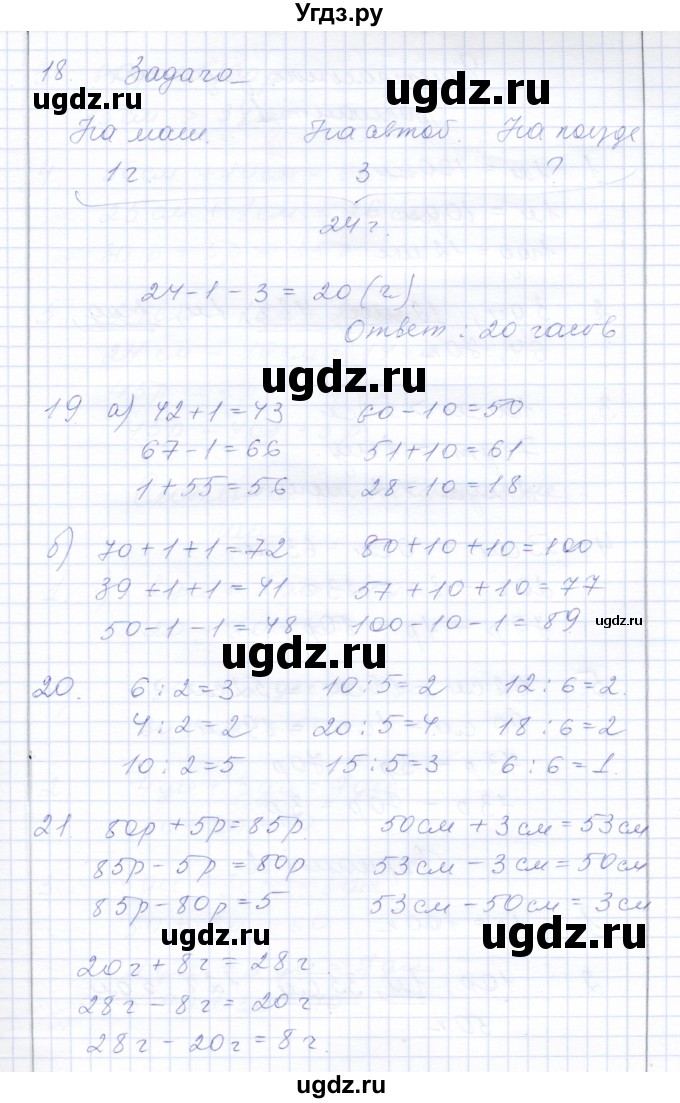 Угдз.ру
18. Задача
ugdz.ru ugdz.ru
На маш. На автоб. На поезде
1 ч. 3 ?
24 ч.
24 - 1 - 3 = 20 (ч).
Ответ: 20 часов
ugdz.ru
19 а) 42 + 1 = 43 60 - 10 = 50
67 - 1 = 66 51 + 10 = 61
1 + 55 = 56 28 - 10 = 18
б) 70 + 1 + 1 = 72 80 + 10 + 10 = 100
39 + 1 + 1 = 41 57 + 10 + 10 = 77
50 - 1 - 1 = 48 100 - 10 - 1 = 89 ugdz.ru
ugdz.ru
20. 6 : 2 = 3 10 : 5 = 2 12 : 6 = 2.
4 : 2 = 2 20 : 5 = 4. 18 : 6 = 2
10 : 2 = 5 15 : 5 = 3 6 : 6 = 1.
21. 80р + 5р = 85р. 50см + 3см = 53см
85р - 5р = 80р 53см - 3см = 50см
85р - 80р = 5 53см - 50см = 3см
ugdz.ru ugdz.ru
20ч + 8ч = 28ч.
28ч - 8ч = 20ч.
28ч - 20ч = 8ч.
ugdz.ru